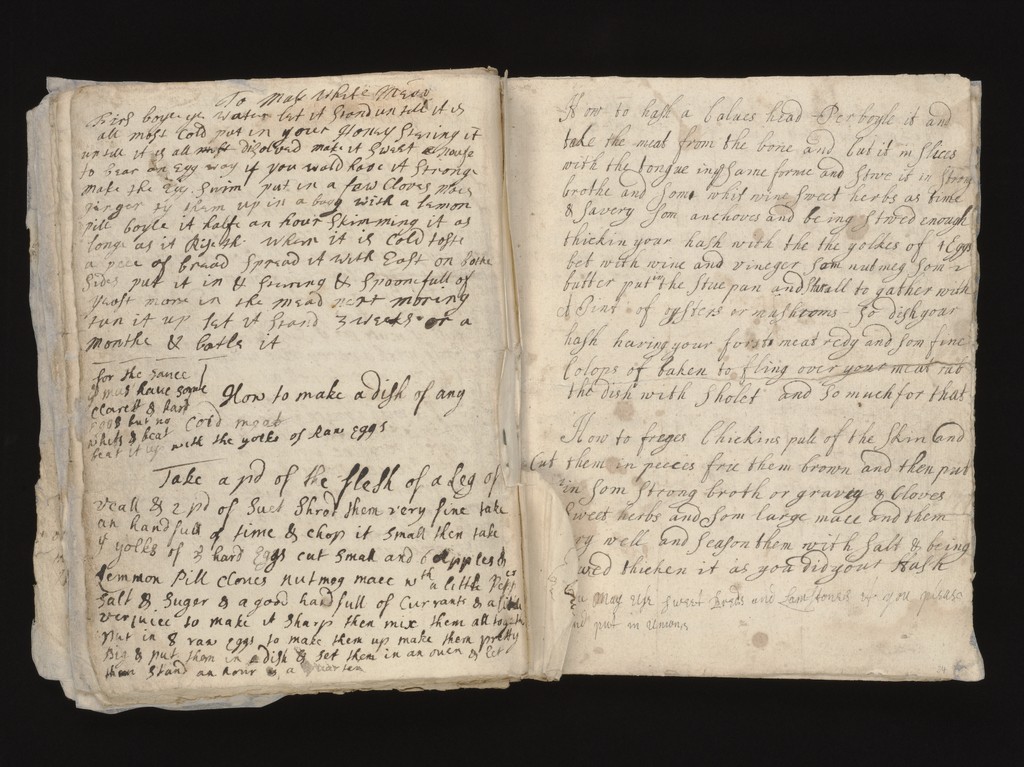 To Make White Mead
First boyle ye water let it stand untill it is
all most Cold put in your Honey stirring it
untill it is all disolved make it sweet
to bear an Egg way if you would have it stronge
make the Egg swim put in a few Cloves Mace
Ginger ty them up in a bagg with a lemon
pill boyle it halfe an hour skimming it as
longe as it Riseth when it is Cold toste
a peec of bread spread it with East on bothe
sides put it in & stirring & spoonefull of
yeast more in the mead next morning
tun it up let it stand 3 weeks or a
monthe & botle it
for the sauce
you must have some
Claret & hard
eggs but no
whits & beat
beat it up with the yolks of Raw Eggs
How to make a dish of any
Cold meat
Take a pd of the flesh of a Leg of
veall & 2 pd of Suet shrod them very fine take
an handfull of time & chop it small then take
yolks of 3 hard Eggs cut small and 6 Apples &
Lemmon Pill Cloves nutmeg mace wth a little
Salt & Suger & a good handfull of Currants & a little
verjuice to make it sharp then mix them all together
Put in 8 raw eggs to make them up make them pretty
Big & put them in a dish & set them in an oven & let
them stand an hour & a quarter
How to hash a Calves head Perboyle it and
take the meat from the bone and Cut it in slices
with the tongue in ye same forme and stwe it in strong
brothe and som whit wine sweet herbs as time
& savery som anchoves and being stwed enough
thickin your hash with the the yolkes of 4 Eggs
bet with wine and vineger som nutmeg som
butter put in the stue pan and shall to gather with
A Pint of oysters or mushrooms so dish your
hash having your forst meat redy and som fine
Colops of baken to fling over your meat rub
the dish with sholet and so much for that
How to freges Chickins pull of the skin and
Cut them in peeces frie them brown and then put
in som strong broth or gravey & Cloves
sweet herbs and som large mace and them
well and season them with salt & being
thicken it as you did your Hash
you May use sweet breds and Lamstones if you please
and put in